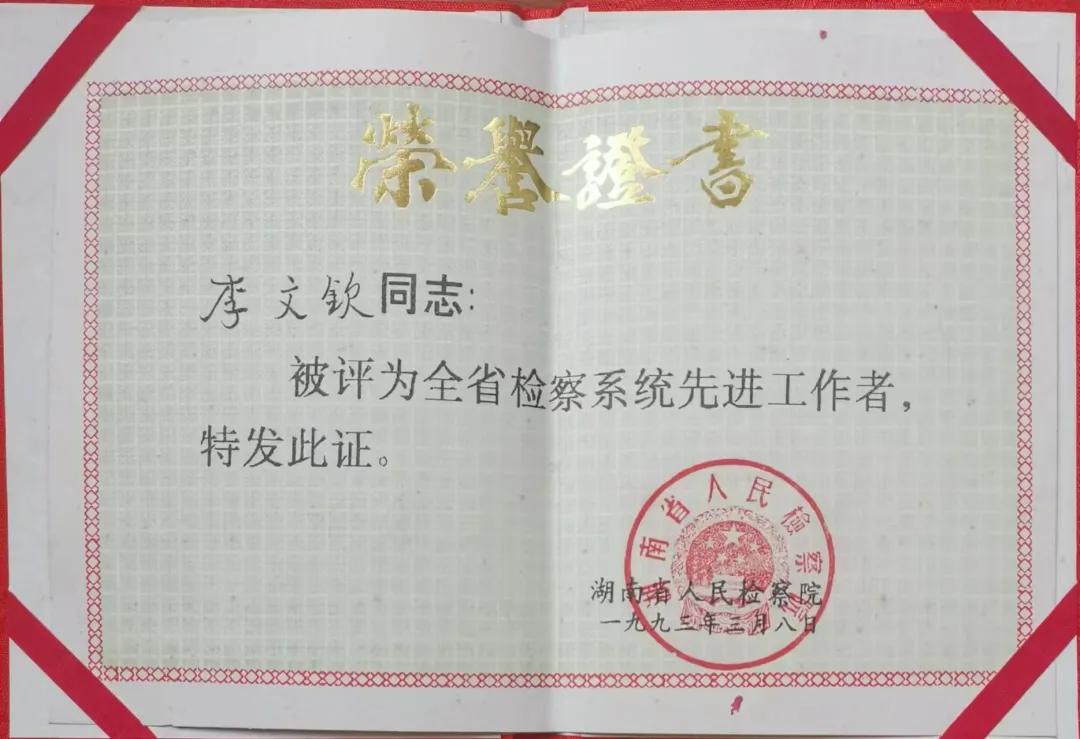 榮譽證書
李文欽同志：
被评为全省检察系统先进工作者，
特发此证。
湖南省人民检察院
湖南省人民检察院
一九九三年三月八日